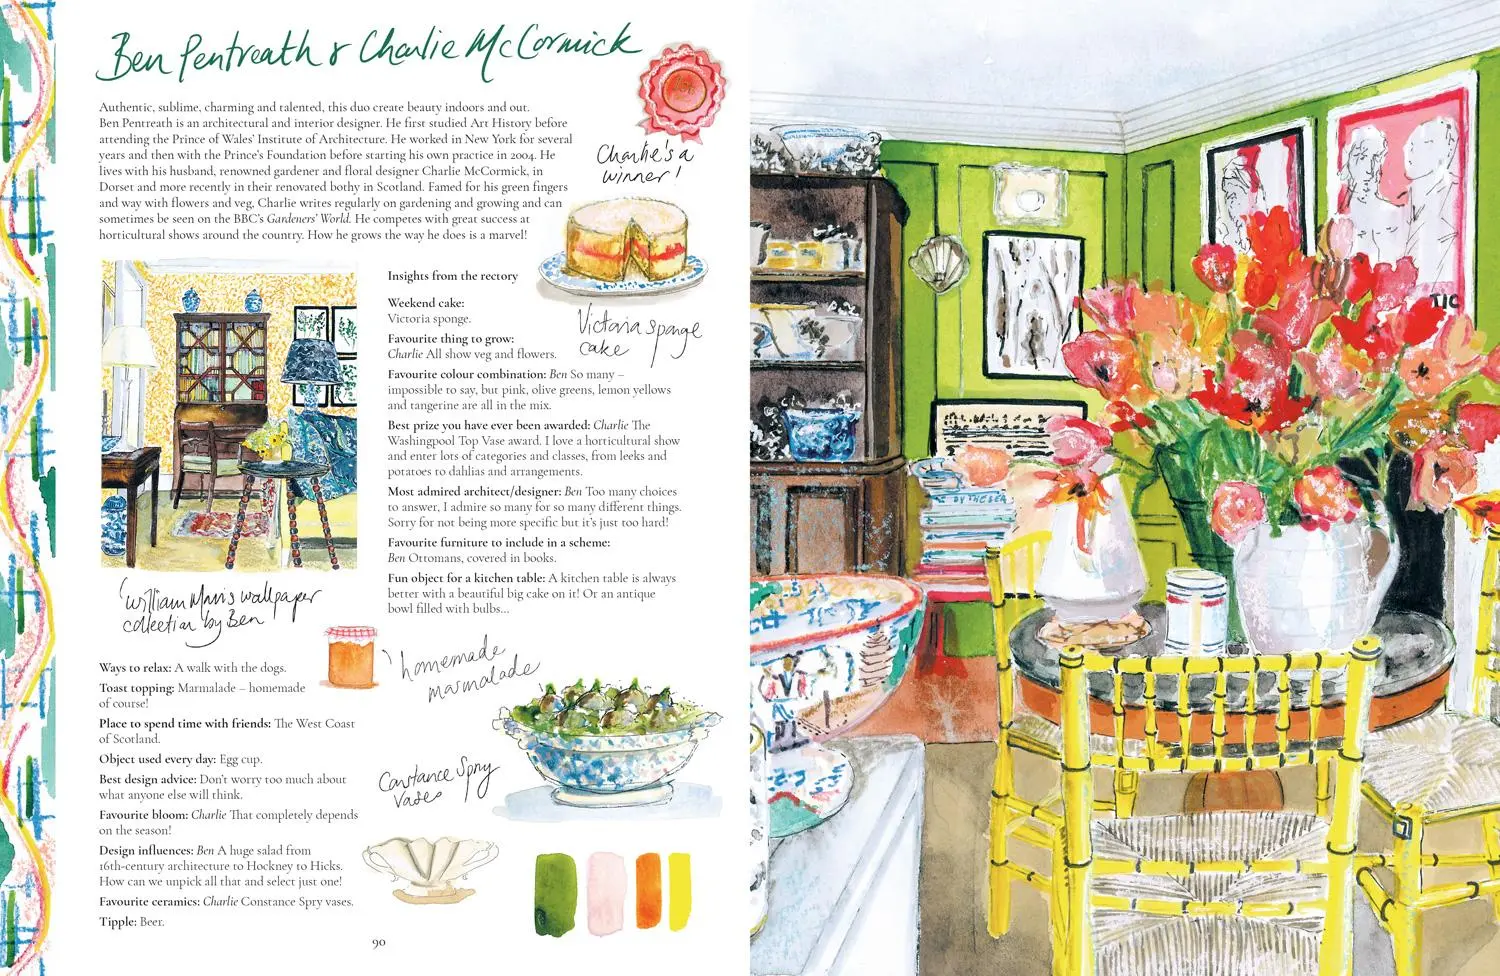 Ben Pentreath & Charlie McCormick
Authentic, sublime, charming and talented, this duo create beauty indoors and out.
Ben Pentreath is an architectural and interior designer. He first studied Art History before
attending the Prince of Wales' Institute of Architecture. He worked in New York for several
years and then with the Prince's Foundation before starting his own practice in 2004. He
lives with his husband, renowned gardener and floral designer Charlie McCormick, in
Dorset and more recently in their renovated bothy in Scotland. Famed for his green fingers
and way with flowers and veg, Charlie writes regularly on gardening and growing and can
sometimes be seen on the BBC's Gardeners' World. He competes with great success at
horticultural shows around the country. How he grows the way he does is a marvel!
Charlie's a
winner!
Victoria sponge
cake
William Morris wallpaper
collection by Ben
Insights from the rectory
Weekend cake:
Victoria sponge.
Favourite thing to grow:
Charlie All show veg and flowers.
Favourite colour combination: Ben So many –
impossible to say, but pink, olive greens, lemon yellows
and tangerine are all in the mix.
Best prize you have ever been awarded: Charlie The
Washingpool Top Vase award. I love a horticultural show
and enter lots of categories and classes, from leeks and
potatoes to dahlias and arrangements.
Most admired architect/designer: Ben Too many choices
to answer, I admire so many for so many different things.
Sorry for not being more specific but it's just too hard!
Favourite furniture to include in a scheme:
Ben Ottomans, covered in books.
Fun object for a kitchen table: A kitchen table is always
better with a beautiful big cake on it! Or an antique
bowl filled with bulbs...
Ways to relax: A walk with the dogs.
Toast topping: Marmalade – homemade
of course!
Place to spend time with friends: The West Coast
of Scotland.
Object used every day: Egg cup.
Best design advice: Don't worry too much about
what anyone else will think.
Favourite bloom: Charlie That completely depends
on the season!
Design influences: Ben A huge salad from
16th-century architecture to Hockney to Hicks.
How can we unpick all that and select just one!
Favourite ceramics: Charlie Constance Spry vases.
Tipple: Beer.
homemade
marmalade
Constance Spry
vases
90
BY THE SEA
TIC